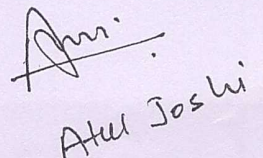 Atul Joshi